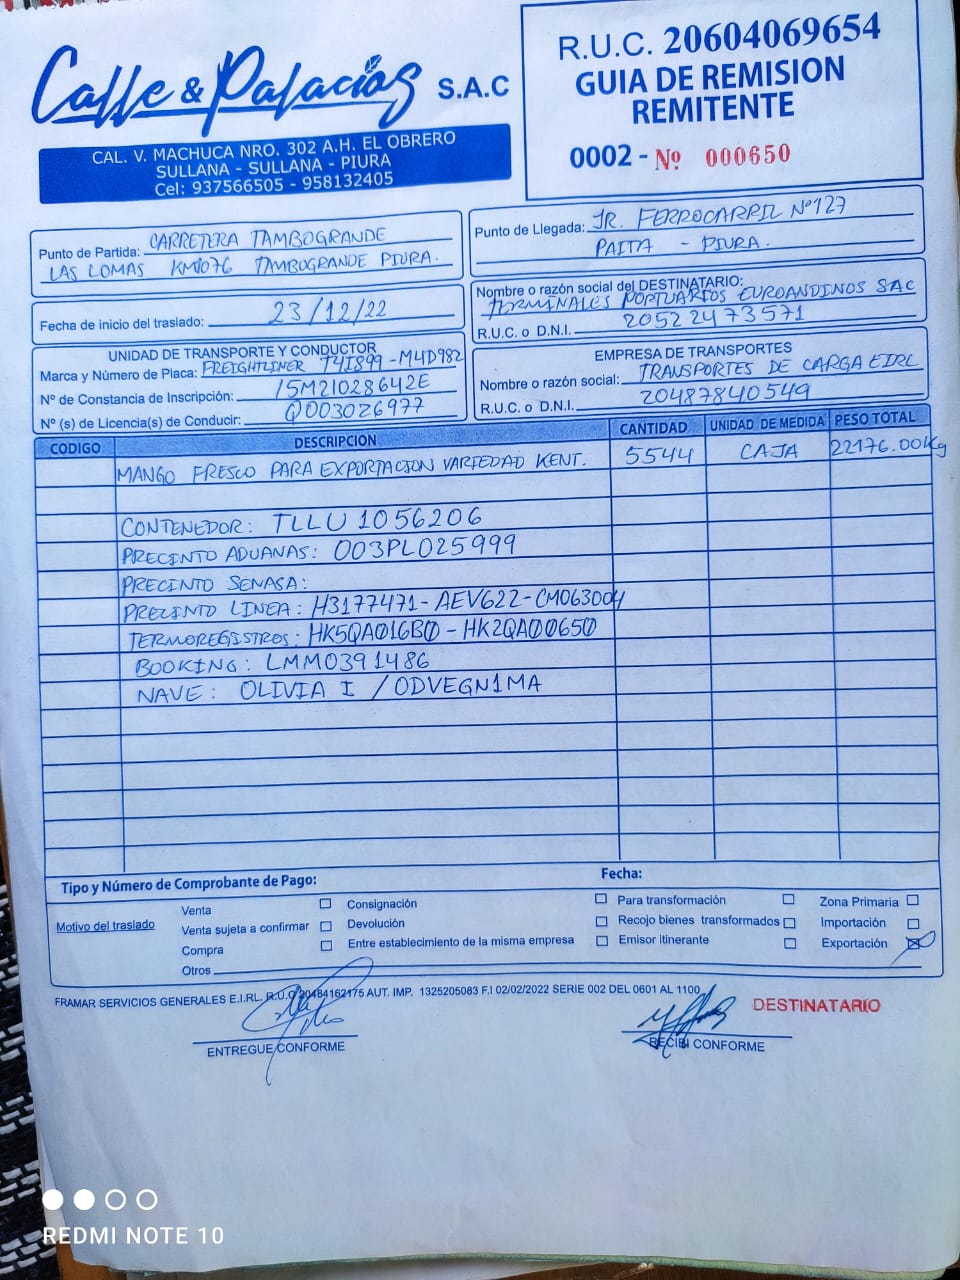 Calle & Palacios S.A.C
CAL. V. MACHUCA NRO. 302 A.H. EL OBRERO
SULLANA - SULLANA - PIURA
Cel: 937566505 - 958132405
R.U.C. 20604069654
GUIA DE REMISION
REMITENTE
0002 - Nº 000650
Punto de Partida: CARRETERA TAMBOGRANDE
LAS LOMAS KM1076 TAMBOGRANDE PIURA.
Punto de Llegada: JR. FERROCARRIL Nº127
PAITA - PIURA.
Fecha de inicio del traslado: 23/12/22
Nombre o razón social del DESTINATARIO:
TERMINALES PORTUARIOS EUROANDINOS SAC
R.U.C. o D.N.I. 20522473571
UNIDAD DE TRANSPORTE Y CONDUCTOR
Marca y Número de Placa: FREIGHTLINER T4I899-M4D982
Nº de Constancia de Inscripción: 15M21028642E
Nº (s) de Licencia(s) de Conducir: Q003026977
EMPRESA DE TRANSPORTES
Nombre o razón social: TRANSPORTES DE CARGA EIRL
R.U.C. o D.N.I. 20487840549
CODIGO DESCRIPCION CANTIDAD UNIDAD DE MEDIDA PESO TOTAL
MANGO FRESCO PARA EXPORTACION VARIEDAD KENT. 5544 CAJA 22176.00Kg
CONTENEDOR: TLLU 1056206
PRECINTO ADUANAS: 003PL025999
PRECINTO SENASA:
PRECINTO LINEA: H3177471-AEV622-CM063004
TERMOREGISTROS: HK5QA016B0 - HK2QA00650
BOOKING: LMM0391486
NAVE: OLIVIA I / ODVEGN1MA
Tipo y Número de Comprobante de Pago: Fecha:
Motivo del traslado
Venta
Venta sujeta a confirmar
Compra
Otros
Consignación
Devolución
Entre establecimiento de la misma empresa
Para transformación
Recojo bienes transformados
Emisor itinerante
Zona Primaria
Importación
Exportación
FRAMAR SERVICIOS GENERALES E.I.RL. R.U.C 20484162175 AUT. IMP. 1325205083 F.I 02/02/2022 SERIE 002 DEL 0601 AL 1100
DESTINATARIO
ENTREGUE CONFORME
RECIBI CONFORME
REDMI NOTE 10